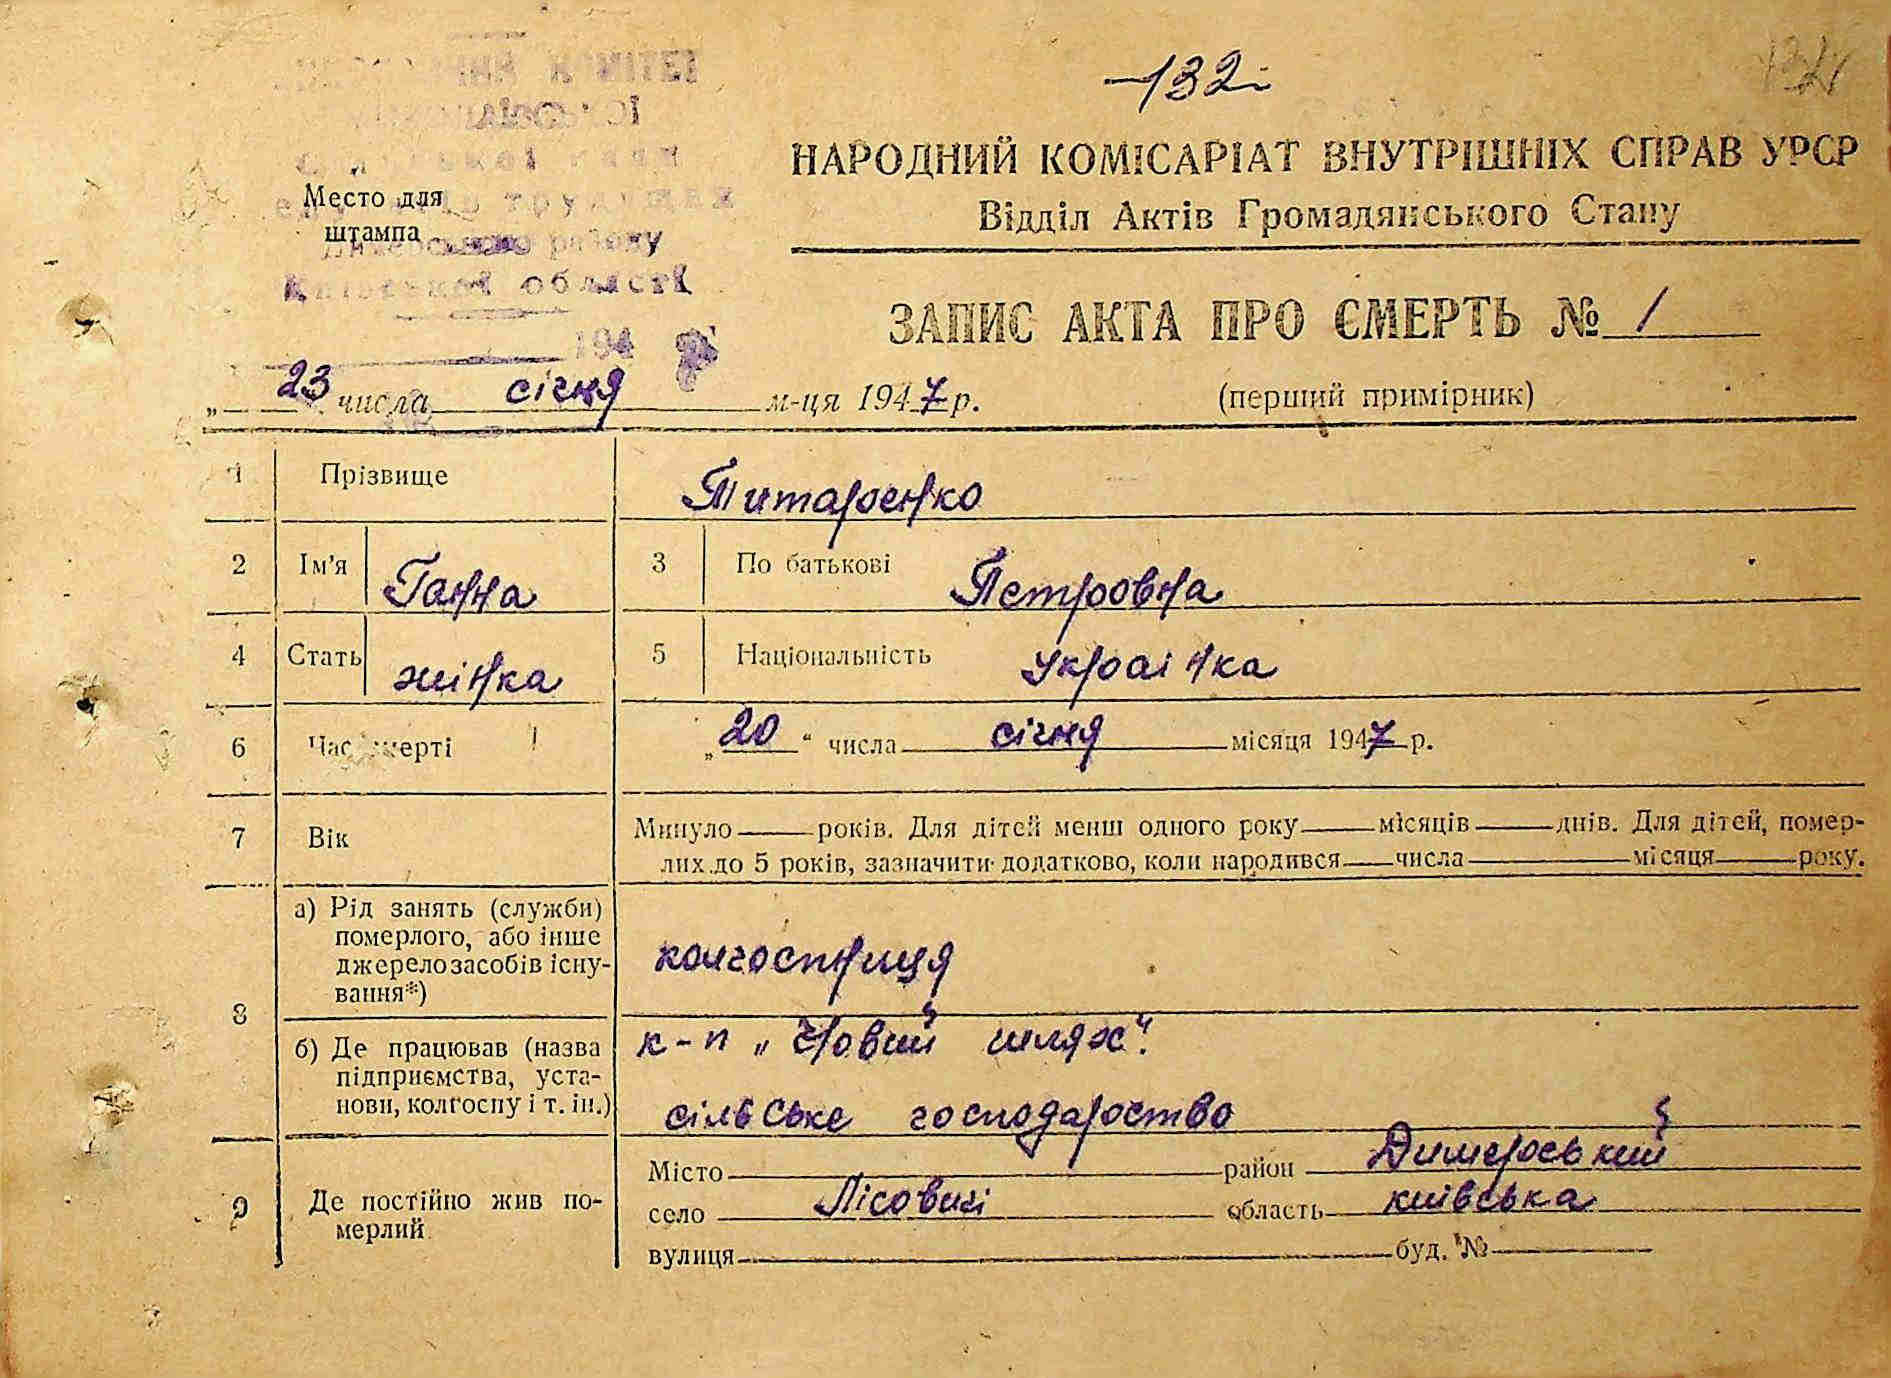 132
132
Место для
штампа
району
Київської області
194
НАРОДНИЙ КОМІСАРІАТ ВНУТРІШНІХ СПРАВ УРСР
Відділ Актів Громадянського Стану
ЗАПИС АКТА ПРО СМЕРТЬ № 1
„ 23 числа січня м-ця 1947 р. (перший примірник)
1 Прізвище Титаренко
2 Ім'я Ганна 3 По батькові Петровна
4 Стать жінка 5 Національність Українка
6 Час смерті „20“ числа січня місяця 1947 р.
7 Вік Минуло років. Для дітей менш одного року місяців днів. Для дітей, помер-
лих до 5 років, зазначити додатково, коли народився числа місяця року.
8 а) Рід занять (служби)
померлого, або інше
джерело засобів існу-
вання*)
колгоспниця
б) Де працював (назва
підприємства, уста-
нови, колгоспу і т. ін.)
к-п „Новий шлях“.
сільське господарство
9 Де постійно жив по-
мерлий
Місто район Димерський
село Лісовичі область київська
вулиця буд. №